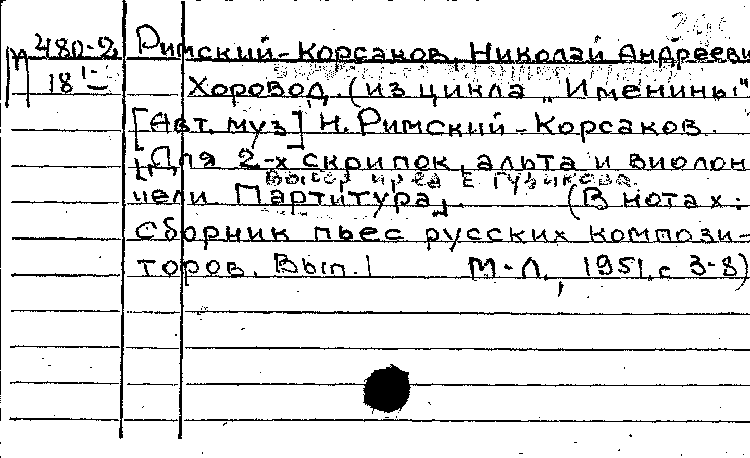 М 480-2 Римский-Корсаков, Николай Андрееви
18 Хоровод. (из цикла „Именины"
[Авт. муз] Н. Римский-Корсаков.
[Для 2-х скрипок, альта и виолон
чели Партитура]. (В нотах:
сборник пьес русских компози-
торов. Вып. 1 М-Л., 1951. с 3-8)